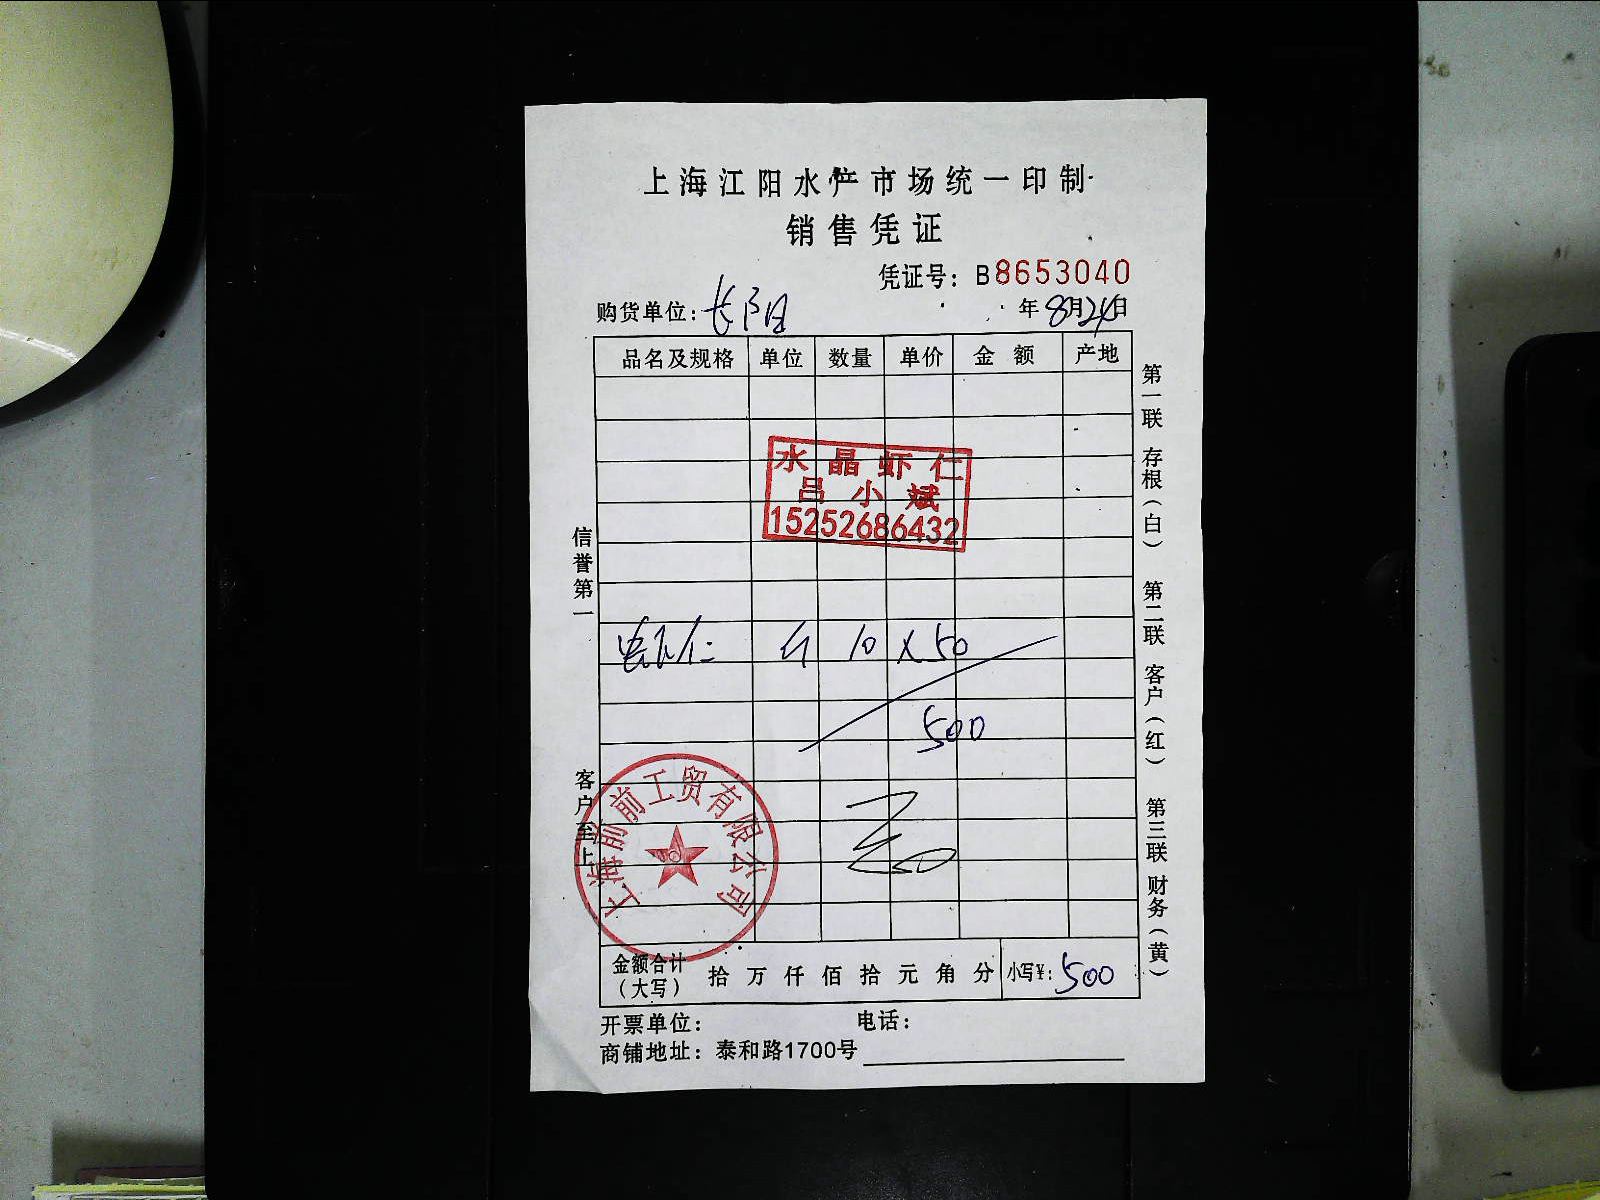 上海江阳水产市场统一印制
销售凭证
凭证号：B8653040
购货单位：长阳
年8月24日
品名及规格 单位 数量 单价 金额 产地
水晶虾仁
吕小斌
15252686432
虾仁 斤 10 × 50
500
上海前前工贸有限公司
金额合计（大写） 拾 万 仟 佰 拾 元 角 分 小写¥：500
开票单位： 电话：
商铺地址：泰和路1700号
信誉第一 客户至上
第一联 存根（白） 第二联 客户（红） 第三联 财务（黄）